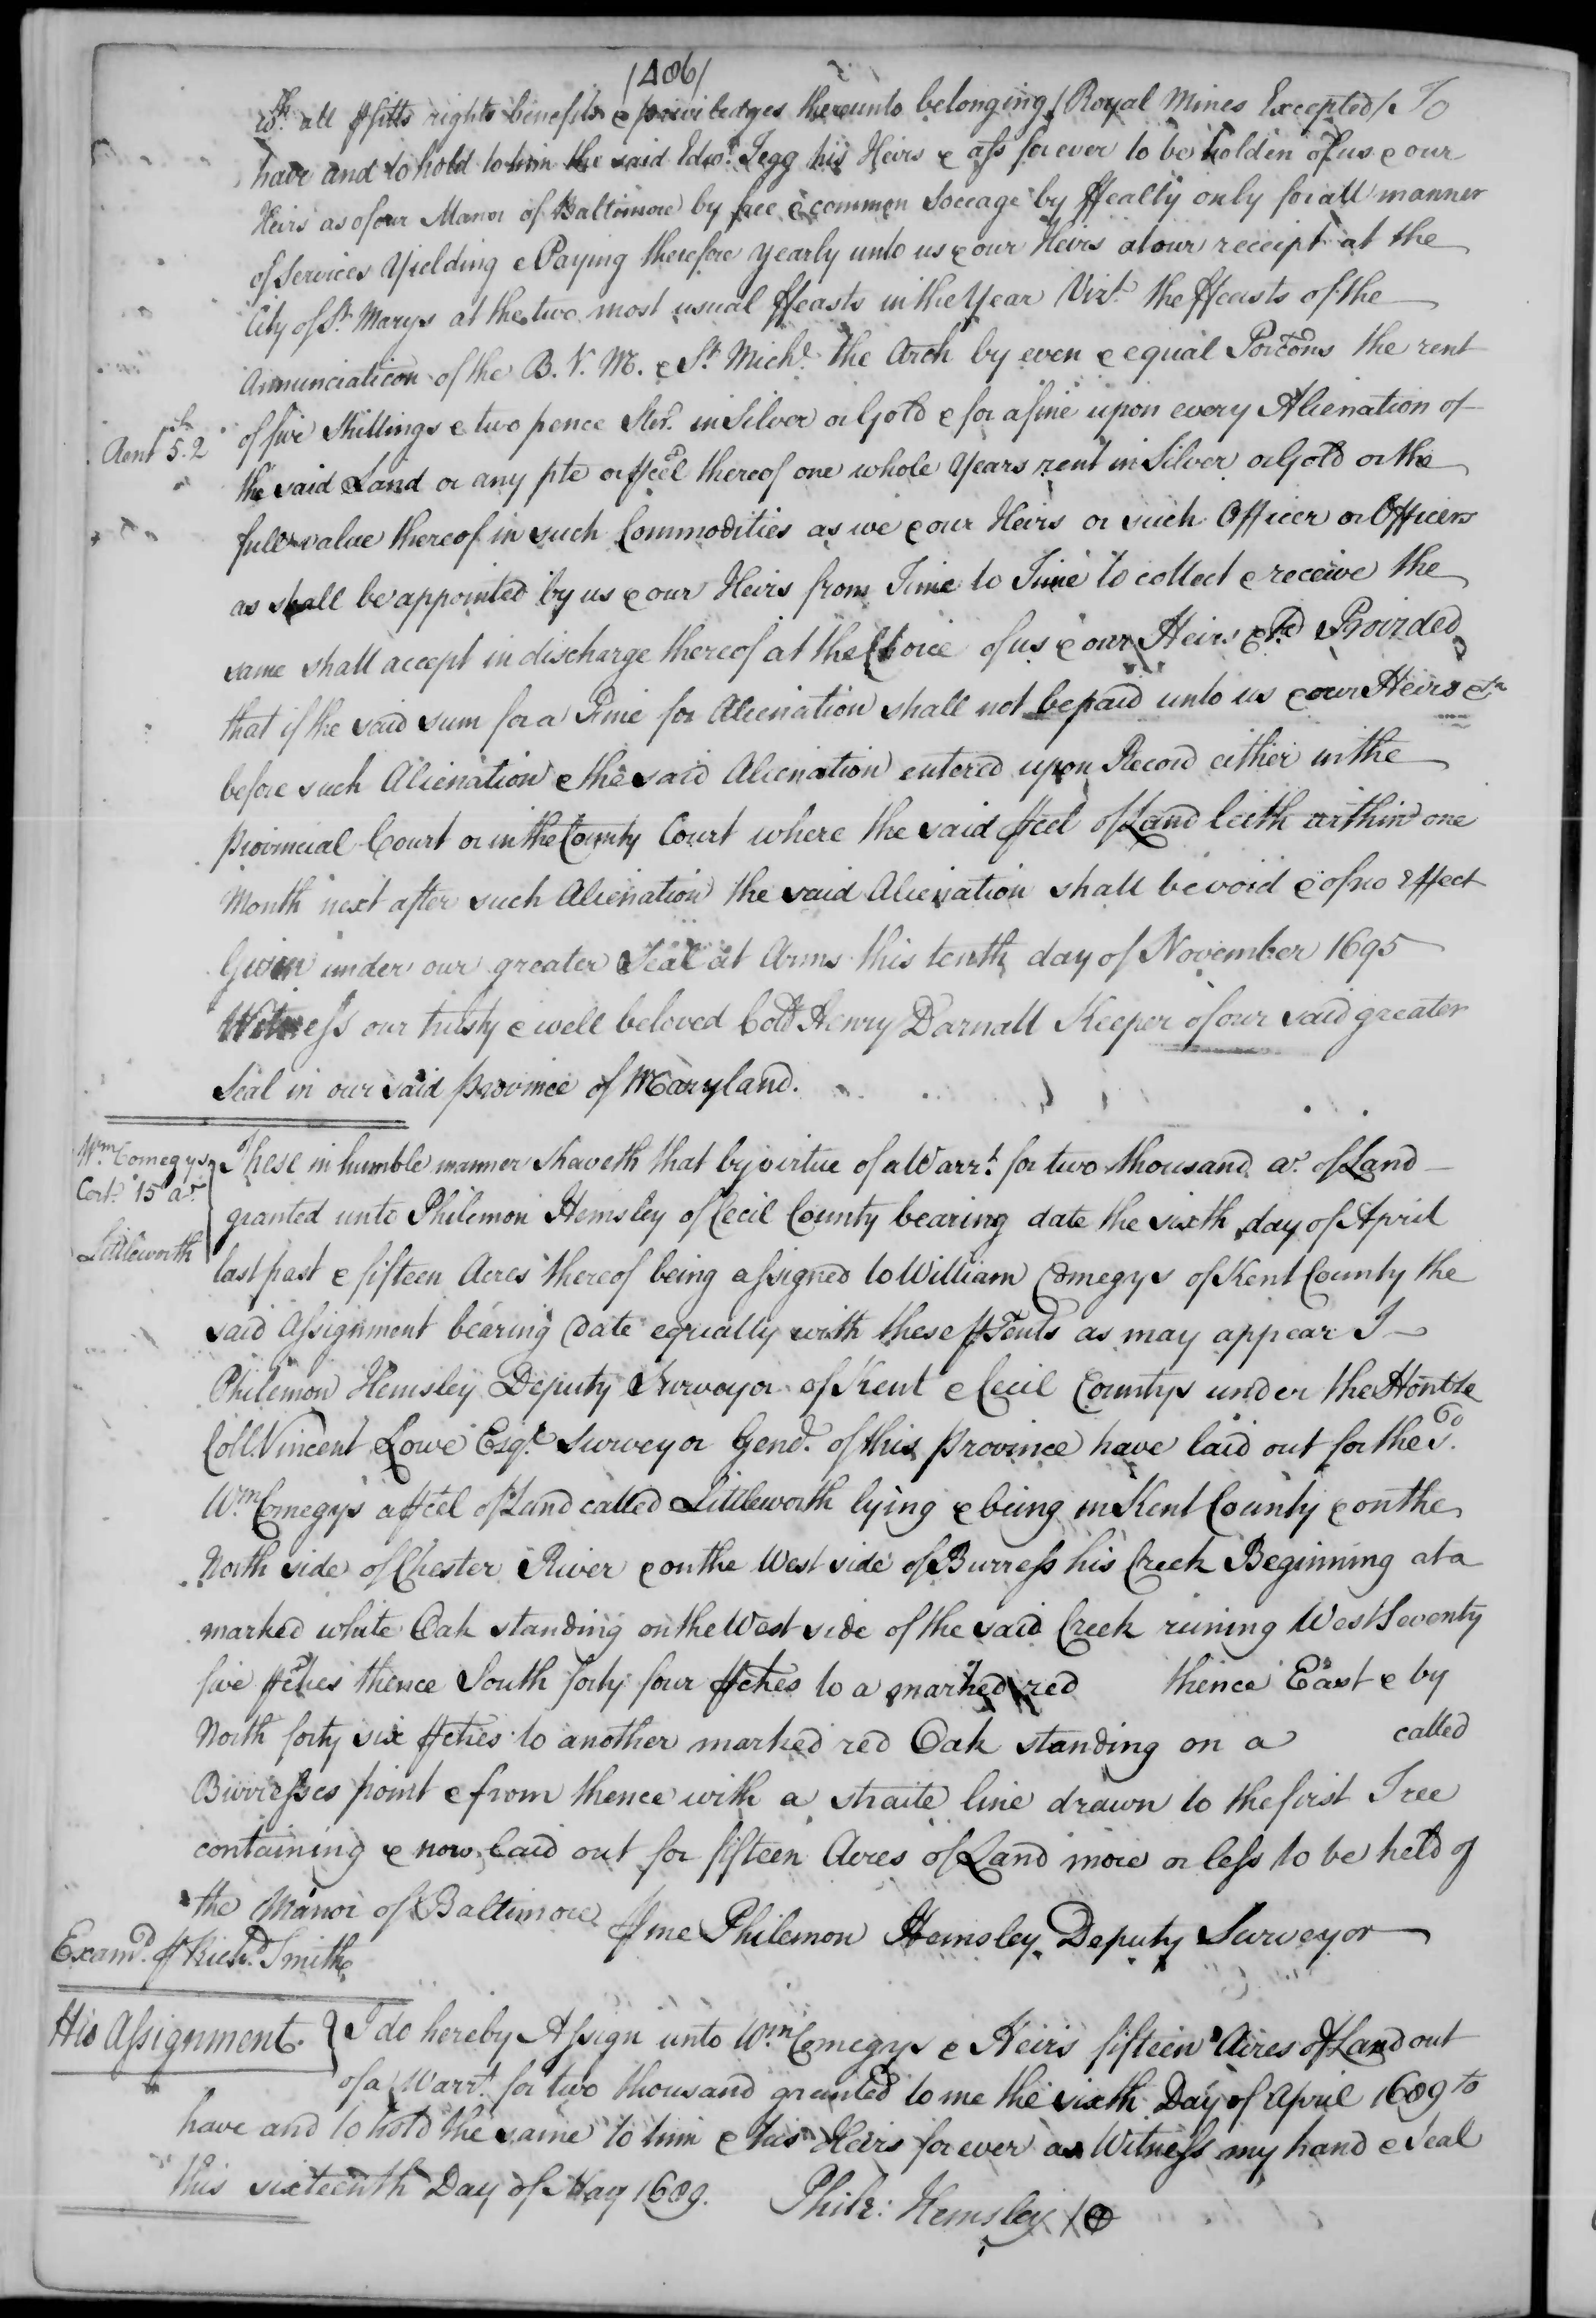 /486/
wth. all pfitts rights benefits & priviledges thereunto belonging /Royal Mines Excepted/. To
have and to hold to him the said Edwd. Jegg his Heirs & ass forever to be holden of us & our
Heirs as of our Manor of Baltimore by free & common Soccage by ffealty only for all manner
of Services Yielding & Paying therefore yearly unto us & our Heirs at our receipt at the
City of St. Marys at the two most usual ffeasts in the Year Vizt. the ffeasts of the
Annunciation of the B. V. M. & St. Michl. the Arch by even & equal Porcons the rent
Rent 5s.2
of five Shillings & two pence Ster. in Silver or Gold & for a fine upon every Alienation of
the said Land or any pte or pcel thereof one whole Years rent in Silver or Gold or the
full value thereof in such Commodities as we & our Heirs or such Officer or Officers
as shall be appointed by us & our Heirs from Time to Time to collect & receive the
same shall accept in discharge thereof at the Choice of us & our Heirs &ca Provided
that if the said sum for a Fine for Alienation shall not be paid unto us & our Heirs &ca
before such Alienation & the said Alienation entered upon Record either in the
Provincial Court or in the County Court where the said pcel of Land lieth within one
Month next after such Alienation the said Alienation shall be void & of no Effect
Given under our greater Seal at Arms this tenth day of November 1695
Witness our trusty & well beloved Colo. Henry Darnall Keeper of our said greater
Seal in our said province of Maryland.
Wm. Comegys
Cert. 15 ar.
Littleworth
These in humble manner sheweth that by virtue of a Warrt. for two thousand ar. of Land
granted unto Philemon Hemsley of Cecil County bearing date the sixth day of April
last past & fifteen Acres thereof being assigned to William Comegys of Kent County the
said Assignment bearing Date equally with these psents as may appear I
Philemon Hemsley Deputy Surveyor of Kent & Cecil Countys under the Honble
Coll. Vincent Lowe Esqr. Surveyor Genl. of this province have laid out for the sd.
Wm. Comegys a pcel of Land called Littleworth lying & being in Kent County & on the
North side of Chester River & on the West side of Burress his Creek Beginning at a
marked white Oak standing on the West side of the said Creek runing West Seventy
five pches thence South forty four pches to a marked red thence East & by
North forty six pches to another marked red Oak standing on a called
Burresses point & from thence with a straite line drawn to the first Tree
containing & now laid out for fifteen Acres of Land more or less to be held of
the Manor of Baltimore p me Philemon Hemsley Deputy Surveyor
Examd. p Richd. Smith
His Assignment.
I do hereby Assign unto Wm. Comegys & Heirs fifteen Acres of Land out
of a Warrt. for two thousand granted to me the sixth Day of April 1689 to
have and to hold the same to him & his Heirs forever as Witness my hand & Seal
this sixteenth Day of May 1689. Phile: Hemsley